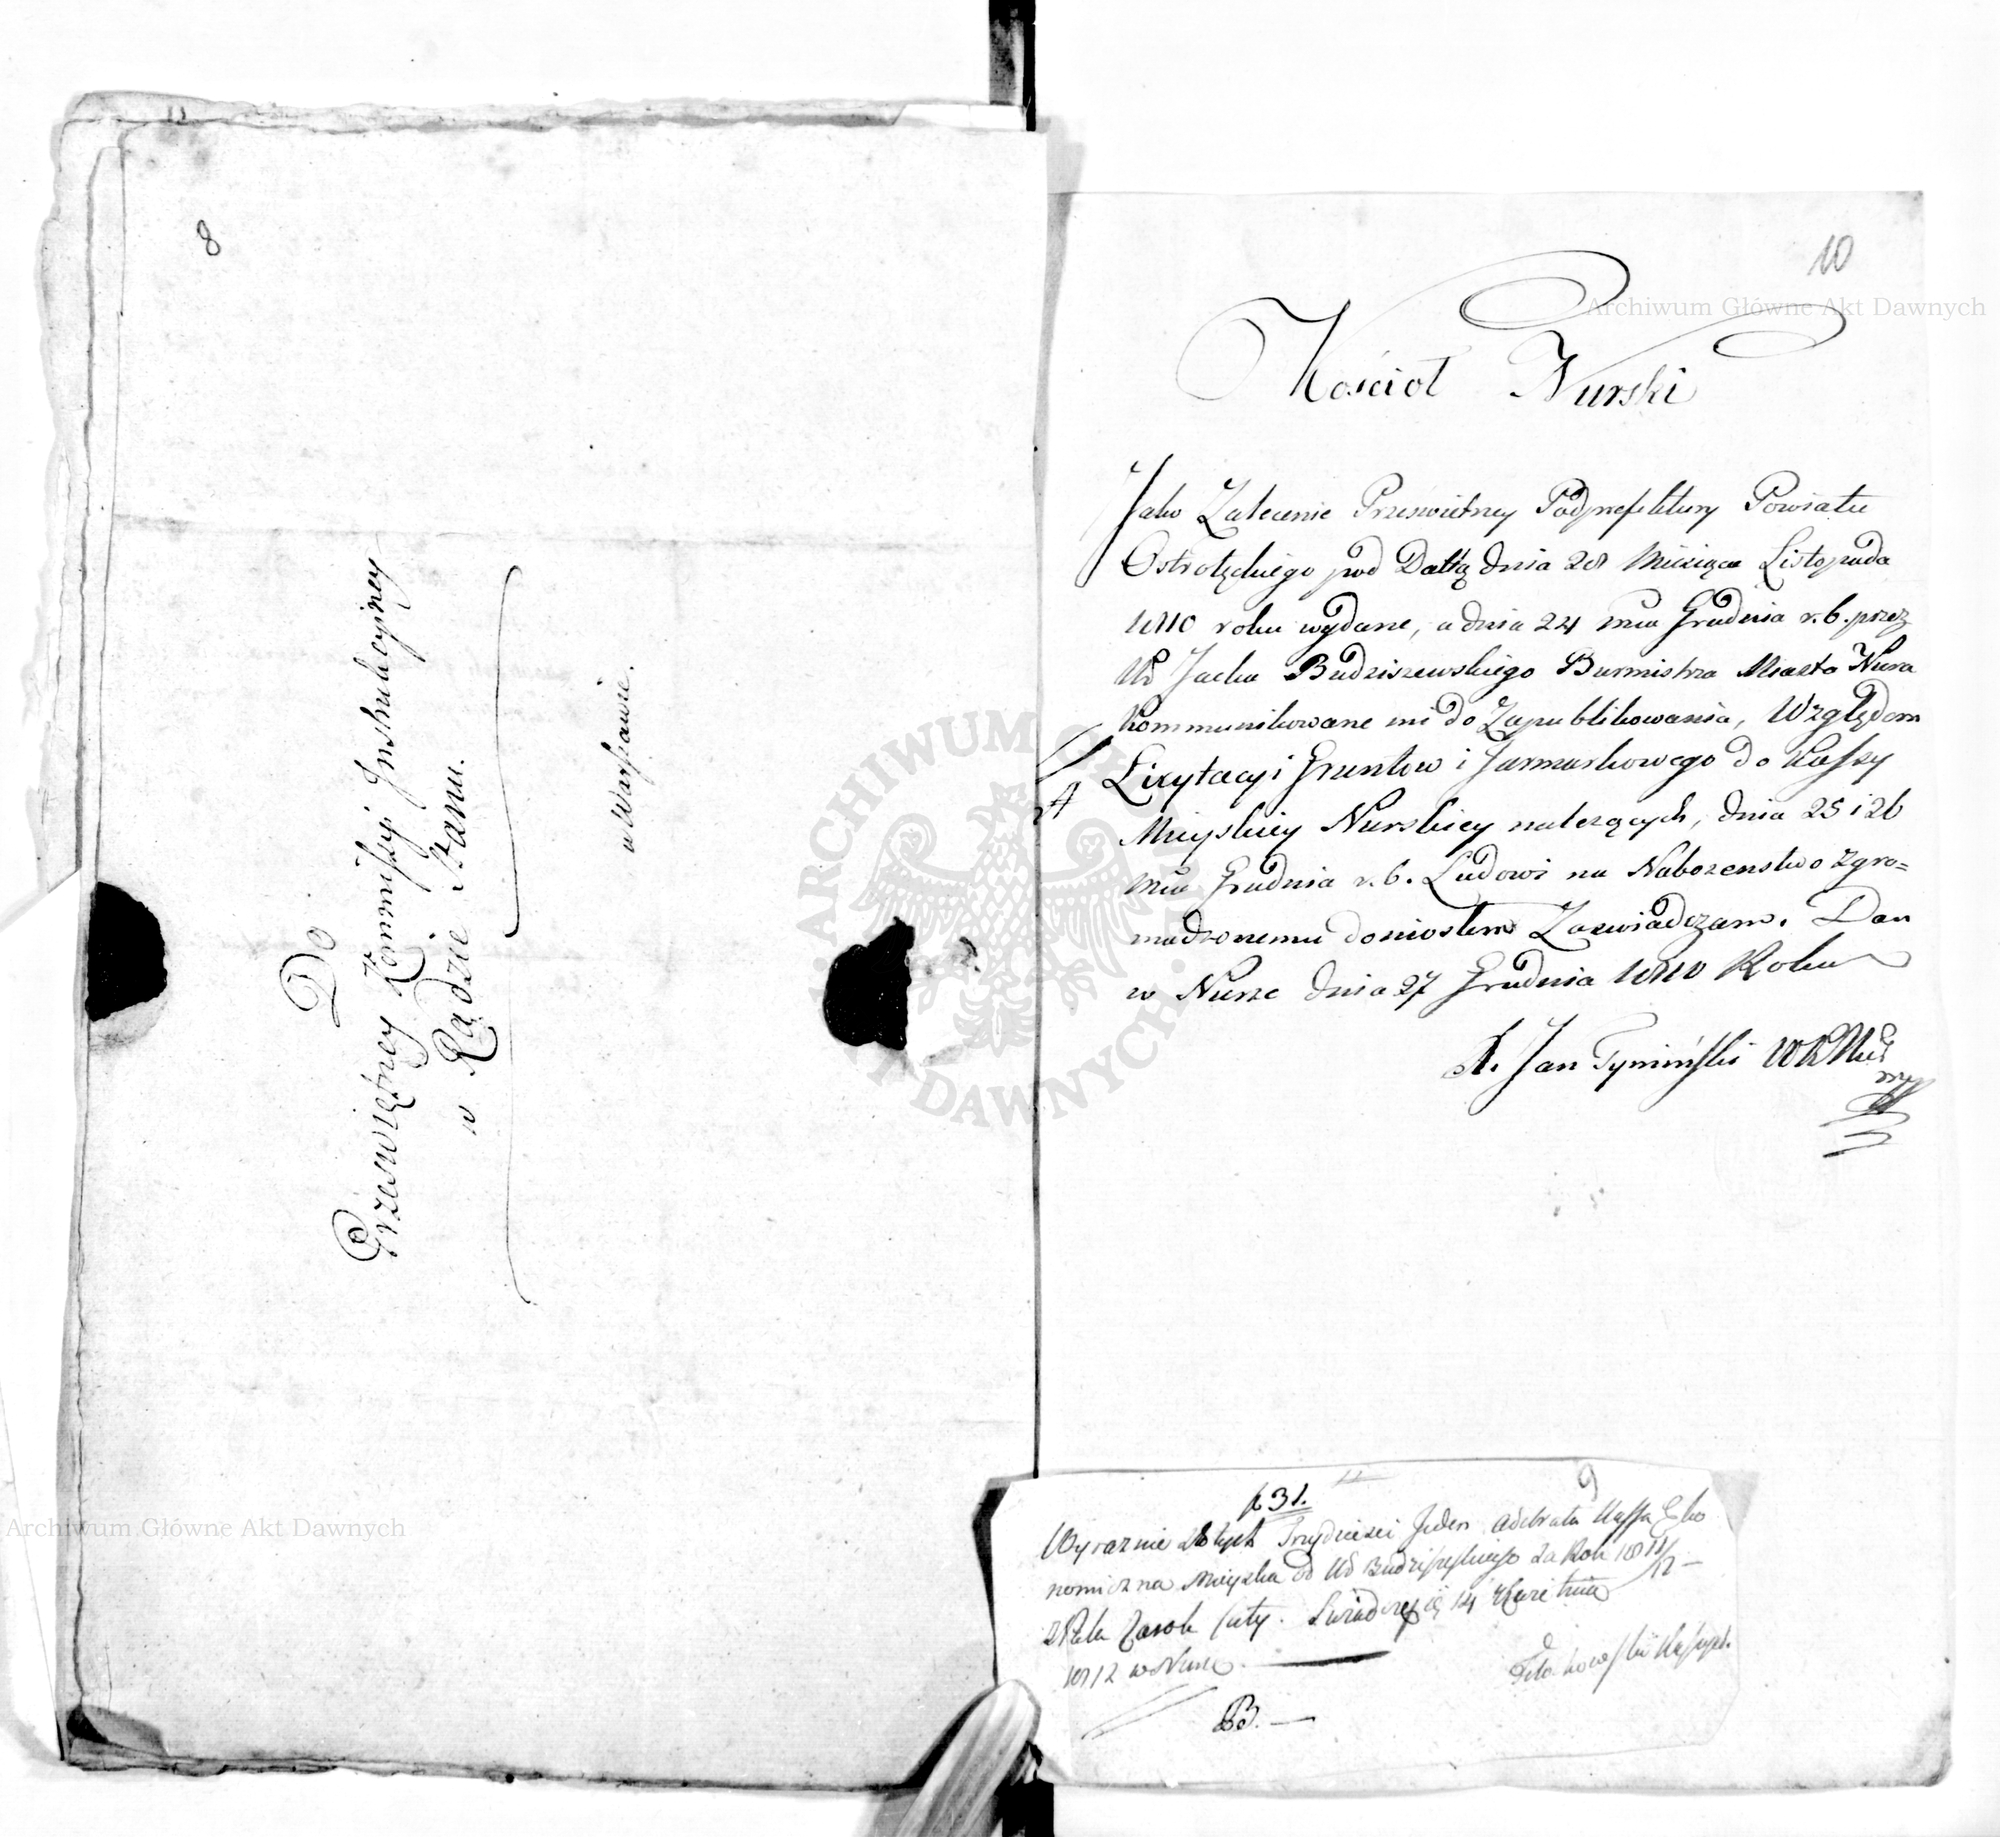 8
Do
Prześwietney Kommissyi Instrukcyiney
w Radzie Stanu.
w Warszawie.
10
Kościoł Nurski
Jako Zalecenie Prześwietney Podprefektury Powiatu
Ostrołęckiego pod Dattą dnia 28 Miesiąca Listopada
1810 roku wydane, a dnia 24 mca Grudnia r. b. przez
Ur Jacka Budziszewskiego Burmistrza Miasta Nura
Kommunikowane mi do Zapublikowania, Względem
Licytacyi Gruntow i Jarmarkowego do Kassy
Mieyskiey Nurskiey należących, dnia 25 i 26
mca Grudnia r. b. Ludowi na Nabożenstwo zgro=
madzonemu doniosłem Zaswiadczam. Dan
w Nurze dnia 27 Grudnia 1810 Roku
X. Jan Tymiński
A
9
31.
Wyraznie Złotych Trzydziesci Jeden odebrała Kassa Eko
nomiczna Mieyska od Ur Budziszewskiego za Rok 1811/12
Swiadczę dnia 14 Kwietnia
1812 w Nurze
B.
Archiwum Główne Akt Dawnych
Archiwum Główne Akt Dawnych
ARCHIWUM GŁÓWNE AKT DAWNYCH